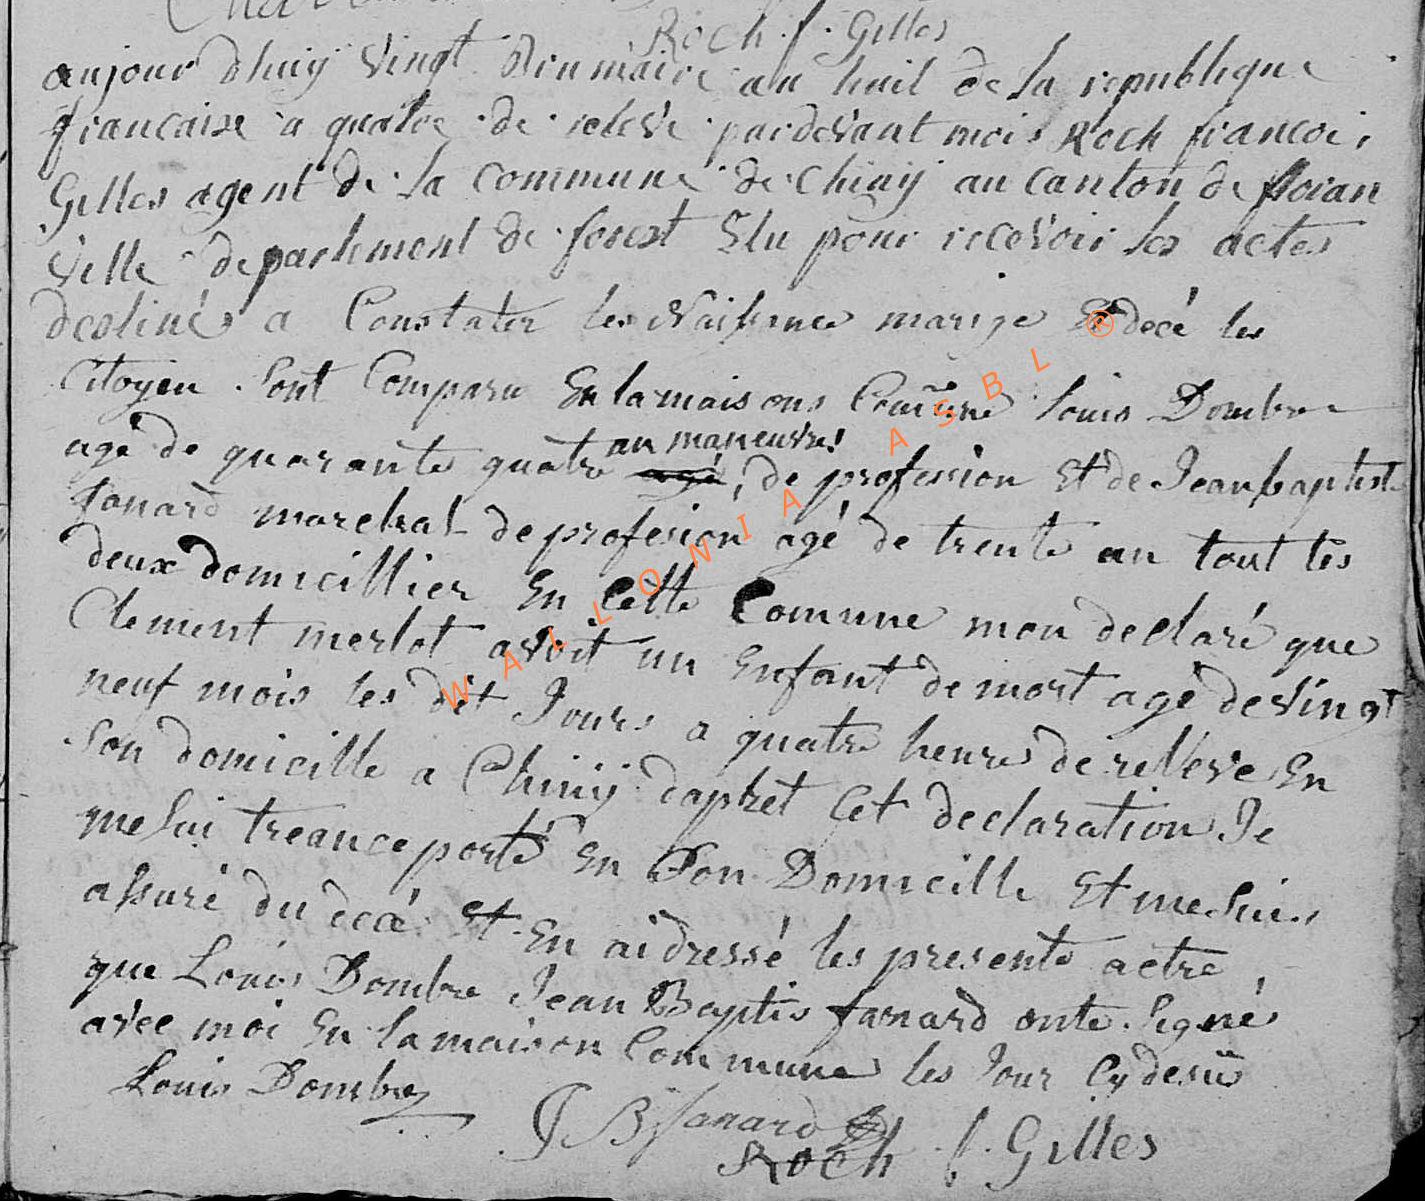 Roch. f. Gilles
aujour dhuy vingt Brumaire an huit de la republique
francaise a quatre de releve pardevant mois Roch francois
Gilles agent de la commune de Chiny au canton de floran
ville departement de forest Elu pour recevoir les actes
destinés a Constater les Naissance marige Et decé les
Citoyen sont Comparu En la maisons Comune louis Dombre
agé de quarante quatre an maneuvre! agé, de profession et de Jean baptist
fanard marchal de profesion agé de trente an tout les
deux domicillier En Cette Comune mon declaré que
Clement merlot avoit un Enfant de mort agé de vingt
neuf mois les dit Jours a quatre heures de releve En
son domicille a Chiny daphet Cet declaration Je
me sui treanceporté En Son Domicille Et me suis
assuré du decé et En aidressé les presente actre
que Louis Dombre Jean Baptis fanard onte signé
avec moi En la maison Commune les Jour Cy desus
Louis Dombre
J B fanard
Roch f. Gilles
WALLONIA ASBL ®